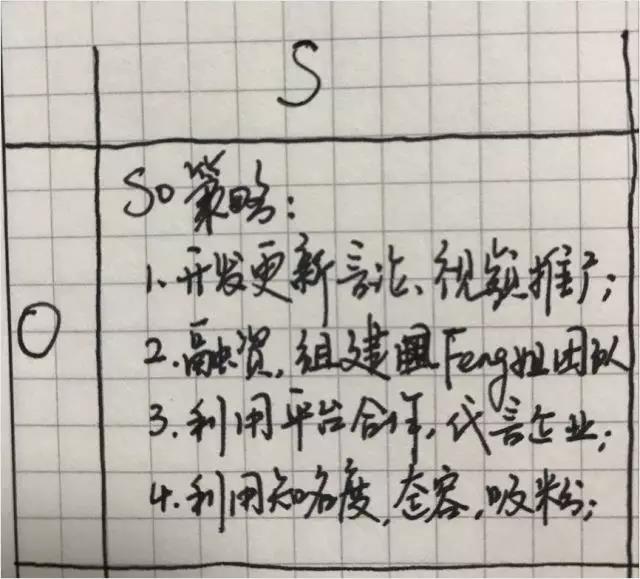 S
O
SO策略:
1.开发更新言论、视频推广;
2.融资,组建Feng姐团队
3.利用平台合作,代言企业;
4.利用知名度,整容,吸粉;